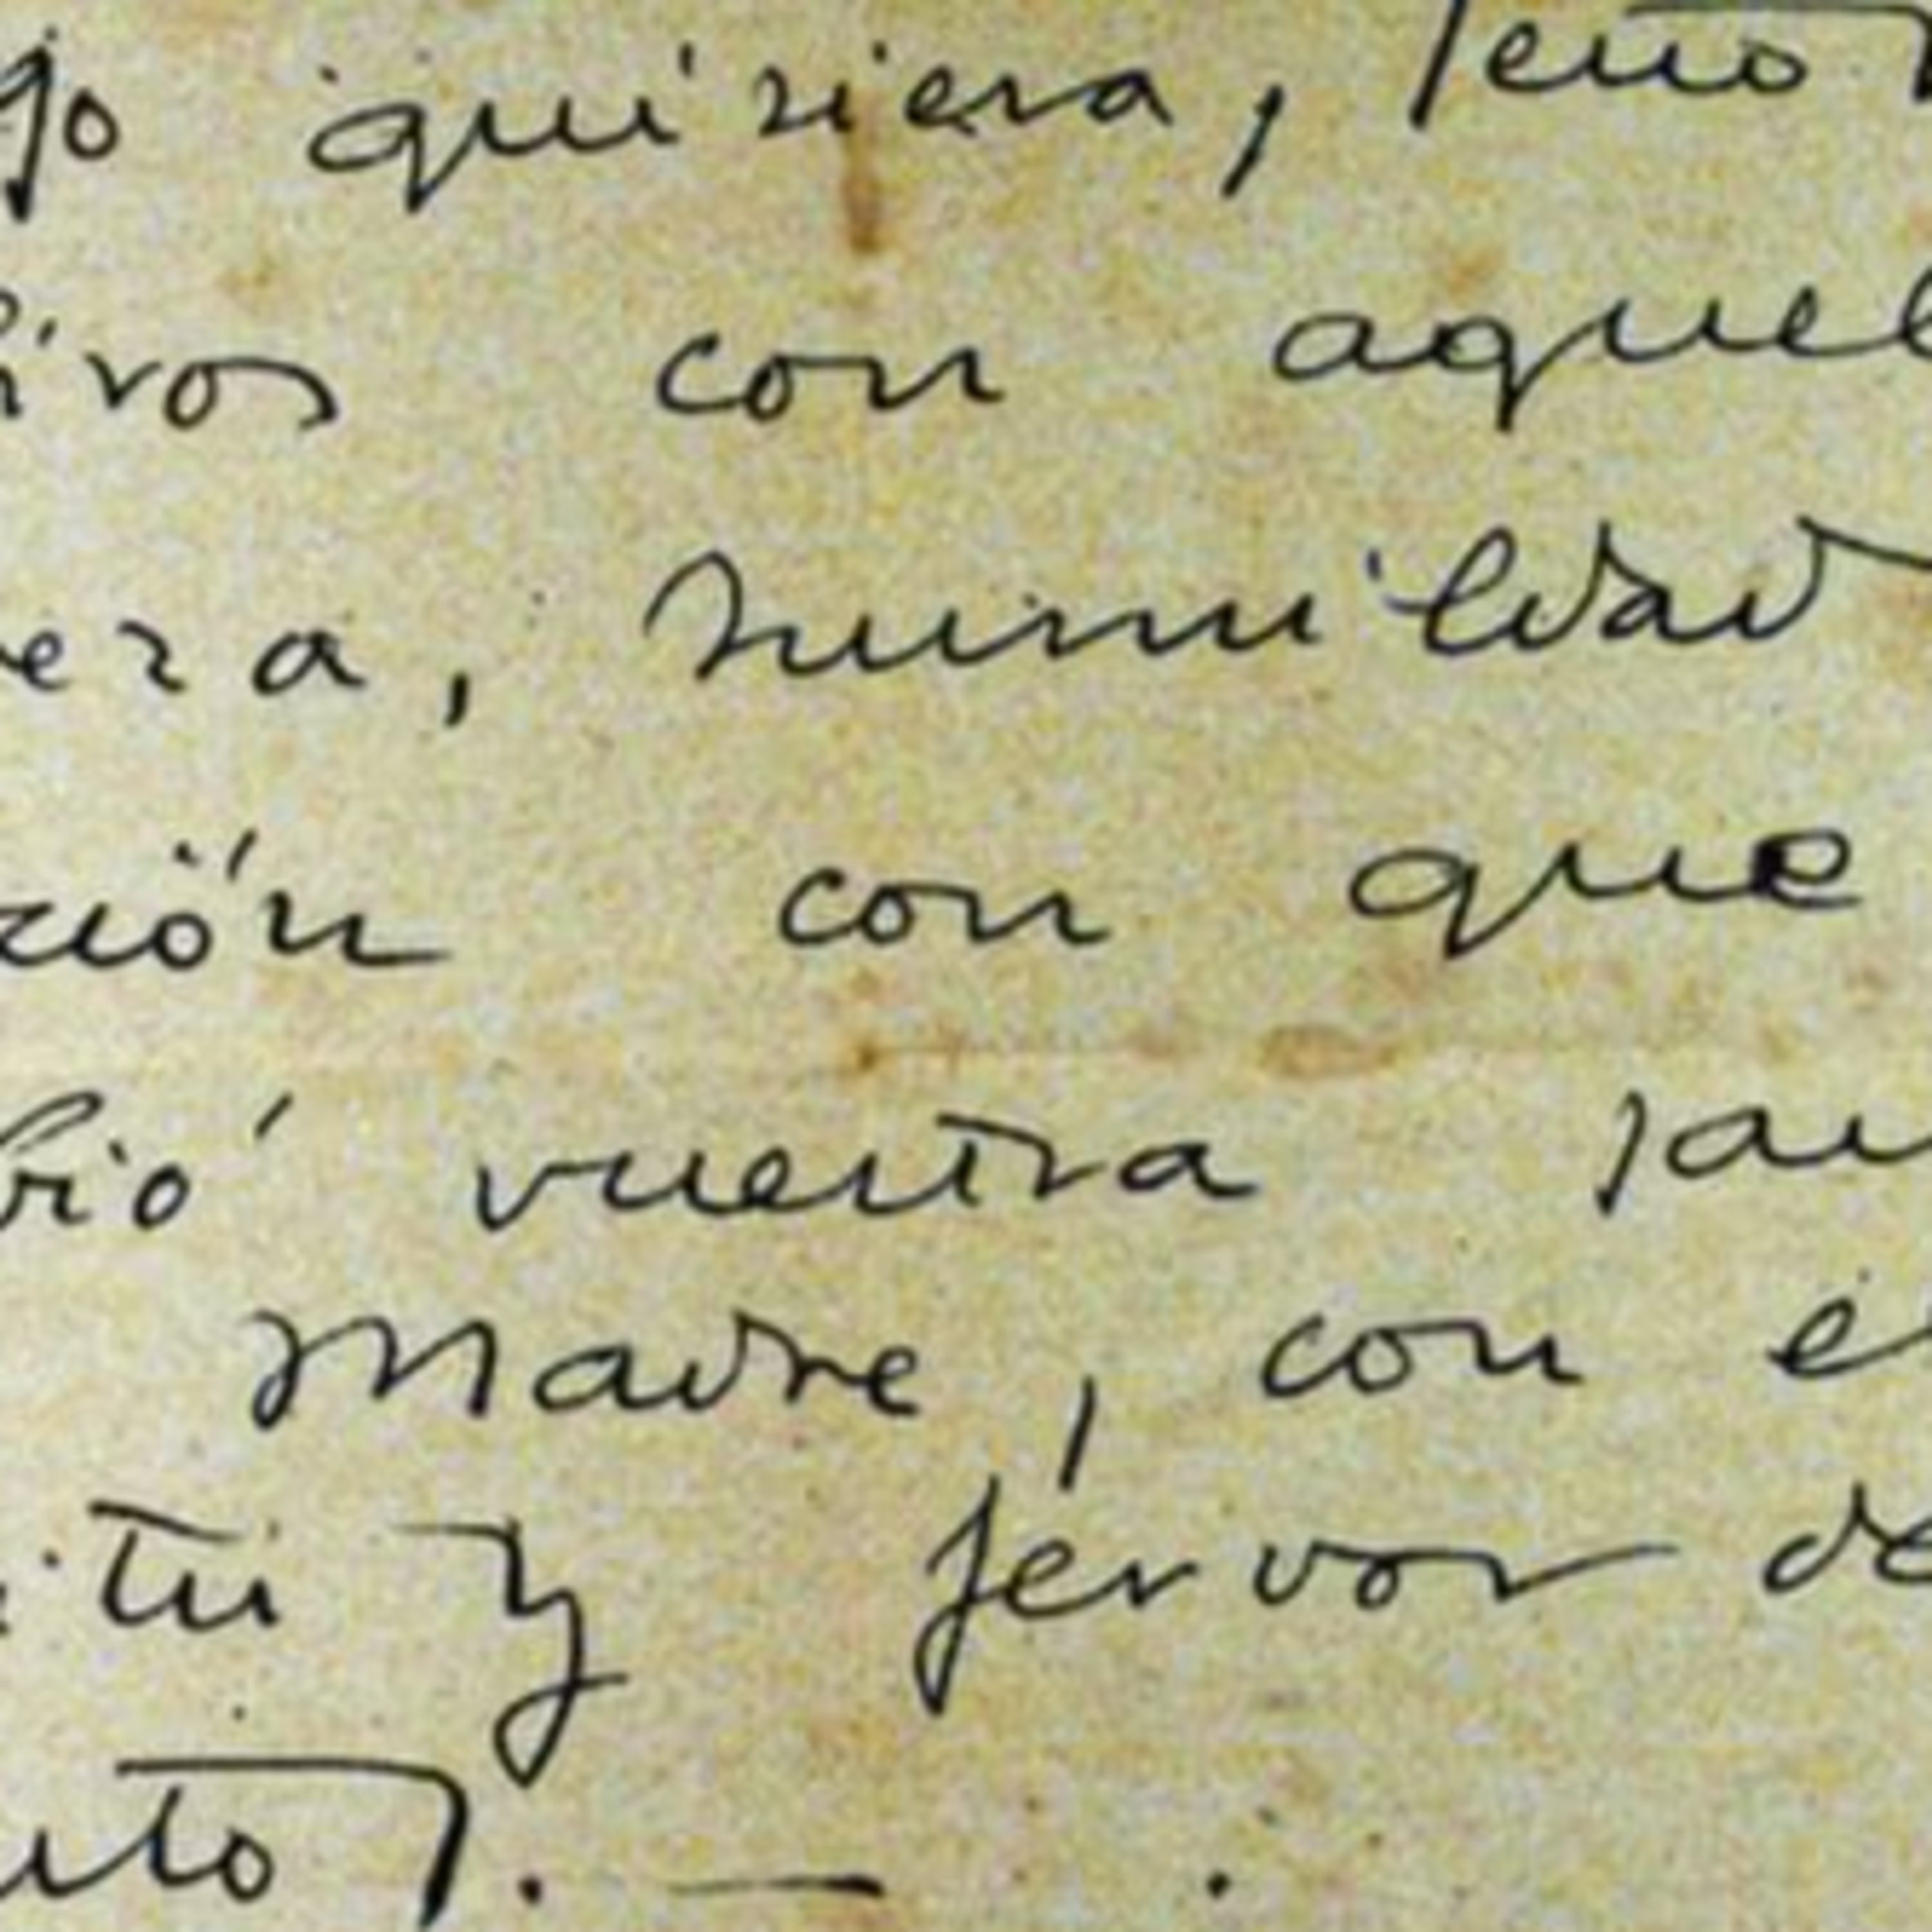 yo quisiera, Señor
iros con aquel
eza, humildad
ción con que
bió vuestra san
Madre, con el
itu y fervor de
ntos. — .